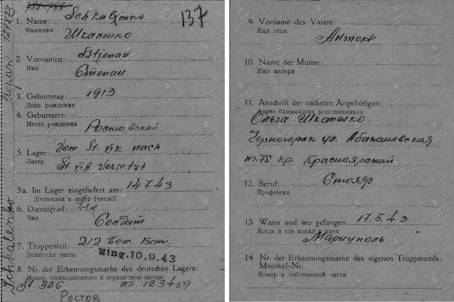 137
1. Name: Schkalenko
Фамилия Шкаленко
2. Vornamen: Stepan
Имя Степан
3. Geburtstag: 1913
День рождения
4. Geburtsort:
Место рождения Ростовской
5. Lager: Vom St. VIK nach
Лагерь St. VIA versetzt
5a. Im Lager eingeliefert am: 14.7.43
Доставлен в лагерь (число)
6. Dienstgrad: Sold
Чин Солдат
7. Truppenteil: 212
Воинская часть Eing. 10.9.43
8. Nr. der Erkennungsmarke des deutschen Lagers:
Номер опознавательной в германской лагере
St. 326 123459
Ростов
9. Vorname des Vaters:
Имя отца
Антон
10. Name der Mutter:
Имя матери
11. Anschrift der nächsten Angehörigen:
Адрес ближайших родственников
Ольга Шкаленко
Черногорск ул.
кр. Красноярский
12. Beruf: Столяр
Профессия
13. Wann und wo gefangen: 17.5.43
Когда и где попал в плен
Мариуполь
14. Nr. der Erkennungsmarke des eigenen Truppenteils:
Matrikel-Nr.
Номер в собственной части